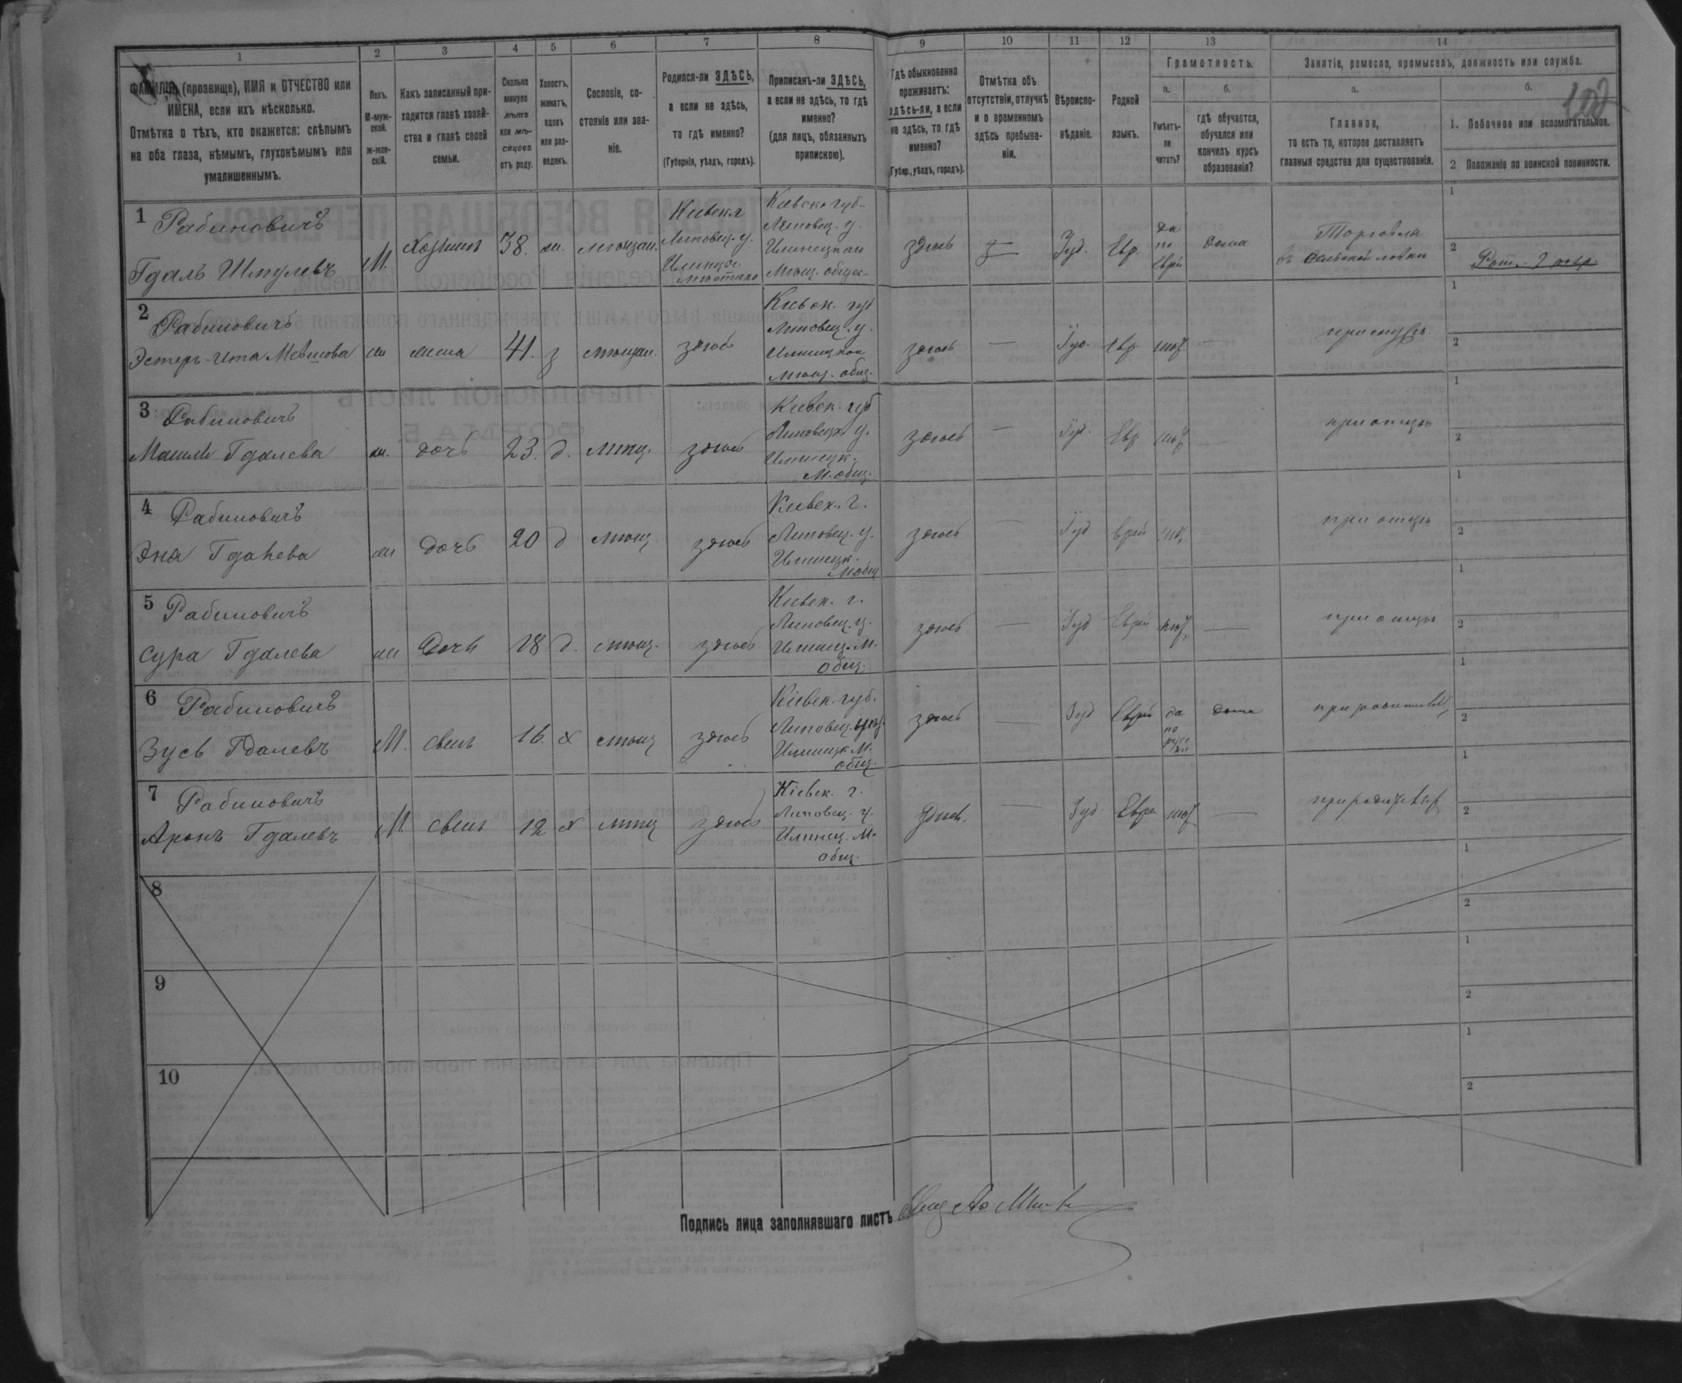 1 2 3 4 5 6 7 8 9 10 11 12 13 14
ФАМИЛІЯ, (прозвище), ИМЯ и ОТЧЕСТВО или
ИМЕНА, если ихъ нѣсколько.
Отмѣтка о тѣхъ, кто окажется: слѣпымъ
на оба глаза, нѣмымъ, глухонѣмымъ или
умалишеннымъ.
Полъ.
М-муж-
ской.
Ж-жен-
скій.
Какъ записанный при-
ходится главѣ хозяй-
ства и главѣ своей
семьи.
Сколько
минуло
лѣтъ
или мѣ-
сяцевъ
отъ роду.
Холостъ,
женатъ,
вдовъ
или раз-
веденъ.
Сословіе, со-
стояніе или зва-
ніе.
Родился-ли ЗДѢСЬ,
а если не здѣсь,
то гдѣ именно?
(Губернія, уѣздъ, городъ).
Приписанъ-ли ЗДѢСЬ,
а если не здѣсь, то гдѣ
именно?
(для лицъ, обязанныхъ
припискою).
Гдѣ обыкновенно
проживаетъ:
здѣсь-ли, а если
не здѣсь, то гдѣ
именно?
(Губер., уѣздъ, городъ).
Отмѣтка объ
отсутствіи, отлучкѣ
и о временномъ
здѣсь пребыва-
ніи.
Вѣроиспо-
вѣданіе.
Родной
языкъ.
Грамотность.
а. б.
Умѣетъ-
ли
читать?
гдѣ обучается,
обучался или
кончилъ курсъ
образованія?
Занятіе, ремесло, промыселъ, должность или служба.
а. б.
Главное,
то есть то, которое доставляетъ
главныя средства для существованія.
1. Побочное или вспомогательное.
2 Положеніе по воинской повинности.
1 Рабиновичъ
Гдаль Шмулевъ
М. Хозяинъ 38. ж. мѣщан.
Кіевская
Липовец. у.
Илинцы
мѣстечко
Кіевск. губ.
Липовец. у.
Илинецкаго
Мѣщ. общес.
здѣсь Іуд. Евр.
да
по
Еврей
дома
Торговля
1
2
2 Рабиновичъ
Эстеръ-Ита
жена 41. з мѣщан. здѣсь
Кіевск. губ
Липовец. у.
Илинецкое
мѣщ. общ.
здѣсь — Іуд. Евр. нѣт —
при мужѣ
1
2
3 Рабиновичъ
Гдалева
ж. дочь 23. д. мѣщ. здѣсь
Кіевск. губ
Липовецк. у.
Илинецк.
М. общ.
здѣсь — Іуд. Евр нѣт —
при отцѣ
1
2
4 Рабиновичъ
Гдалева
ж дочь 20 д мѣщ здѣсь
Кіевск. г.
Липовец. у.
Илинецк.
М общ
здѣсь — Іуд Еврей нѣт —
при отцѣ
1
2
5 Рабиновичъ
Сура Гдалева
ж дочь 18 д. мѣщ. здѣсь
Кіевск. г.
Липовец. у.
Илинец. М.
общ.
здѣсь — Іуд Еврей нѣт, —
при отцѣ
1
2
6 Рабиновичъ
Зусь Гдалевъ
М. сынъ 16 х мѣщ здѣсь
Кіевск. губ.
Липовец. уѣз.
Илинецк М.
общ.
здѣсь — Іуд Еврей
да
по
дома
при родителях
1
2
7 Рабиновичъ
Аронъ Гдалевъ
М сынъ 12 х мѣщ здѣсь
Кіевск. г.
Липовец. у.
Илинец. М.
общ.
здѣсь. — Іуд Евре нѣт —
при родителях
1
2
8
1
2
9
1
2
10
1
2
Подпись лица заполнявшаго листъ